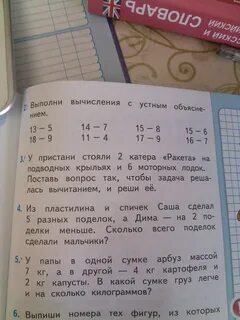 СЛОВАРЬ
2. Выполни вычисления с устным объясне-
нием.
13 − 5 14 − 7 15 − 8 15 − 6
18 − 9 11 − 4 17 − 9 16 − 7
3. У пристани стояли 2 катера «Ракета» на
подводных крыльях и 6 моторных лодок.
Поставь вопрос так, чтобы задача реша-
лась вычитанием, и реши её.
4. Из пластилина и спичек Саша сделал
5 разных поделок, а Дима — на 2 по-
делки меньше. Сколько всего поделок
сделали мальчики?
5. У папы в одной сумке арбуз массой
7 кг, а в другой — 4 кг картофеля и
2 кг капусты. В какой сумке груз легче
и на сколько килограммов?
6. Выпиши номера тех фигур, из которых